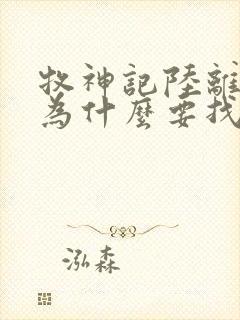 牧神記陸離
為什麼要找
泓森